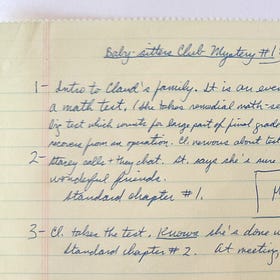 Baby-sitters Club Mystery #1:
1- Intro to Claud's family. It is an even
a math test, (she takes remedial math-se
big test which counts for large part of final grade
recover from an operation. Cl. nervous about test
2- Stacey calls + they chat. St. says she's sure
wonderful friends.
Standard chapter #1.
M
3- Cl. takes the test, Knows she's done w
Standard chapter #2. At meeting